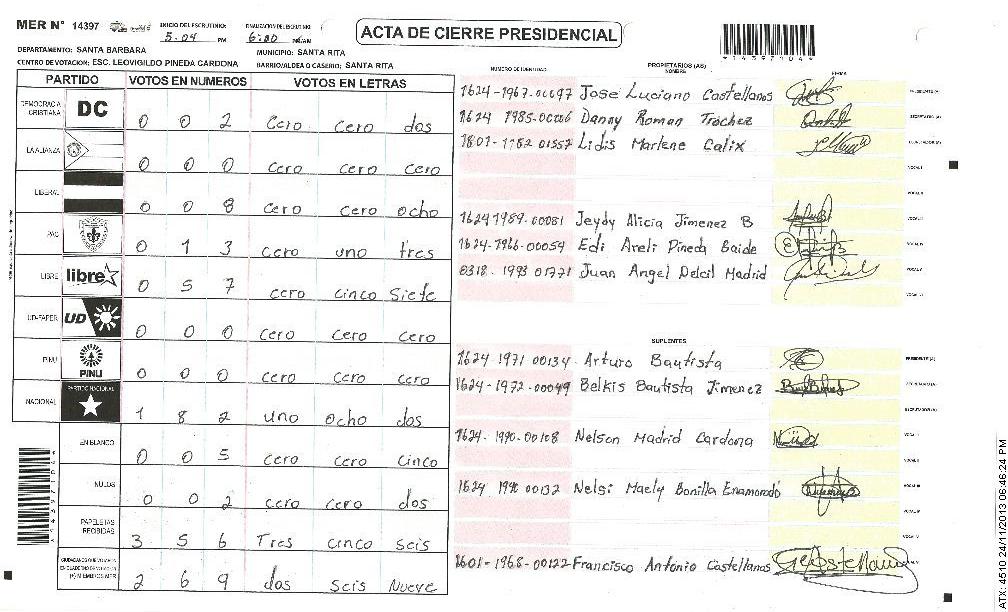 MER N° 14397
INICIO DEL ESCRUTINIO: 5:04 PM
FINALIZACION DEL ESCRUTINIO: 6:00 PM/AM
ACTA DE CIERRE PRESIDENCIAL
*14397104*
DEPARTAMENTO: SANTA BARBARA
MUNICIPIO: SANTA RITA
CENTRO DE VOTACION: ESC. LEOVIGILDO PINEDA CARDONA
BARRIO/ALDEA O CASERIO: SANTA RITA
PARTIDO VOTOS EN NUMEROS VOTOS EN LETRAS
DEMOCRACIA CRISTIANA DC 0 0 2 Cero Cero dos
LA ALIANZA 0 0 0 Cero Cero Cero
LIBERAL 0 0 8 Cero Cero ocho
PAC 0 1 3 cero uno tres
LIBRE libre 0 5 7 cero cinco Siete
UD-FAPER UD 0 0 0 cero cero cero
PINU PINU 0 0 0 cero cero cero
NACIONAL PARTIDO NACIONAL 1 8 2 uno ocho dos
EN BLANCO 0 0 5 cero cero cinco
NULOS 0 0 2 cero cero dos
PAPELETAS RECIBIDAS 3 5 6 Tres cinco seis
2 6 9 dos seis Nueve
NUMERO DE IDENTIDAD PROPIETARIOS (AS) NOMBRE FIRMA
1624-1967-00097 Jose Luciano Castellanos PRESIDENTE (A)
Danny Roman Trochez SECRETARIO (A)
Lidis Marlene Calix ESCRUTADOR (A)
VOCAL I
VOCAL II
1624 1989-00081 Jeydy Alicia Jimenez B VOCAL III
1624-1966-00054 Edi Areli Pineda Baide VOCAL IV
0318-1993 01771 Juan Angel Delcil Madrid VOCAL V
VOCAL VI
SUPLENTES
1624 1971 00134 Arturo Bautista PRESIDENTE (A)
1624-1972-00049 Belkis Bautista Jimenez SECRETARIO (A)
ESCRUTADOR (A)
1624-1990-00108 Nelson Madrid Cardona VOCAL I
VOCAL II
Nelsi Maely Bonilla Enamorado VOCAL III
VOCAL IV
1601-1968-00122 Francisco Antonio Castellanos VOCAL V
*14397104*
ATX: 4510 24/11/2013 06:46:24 PM